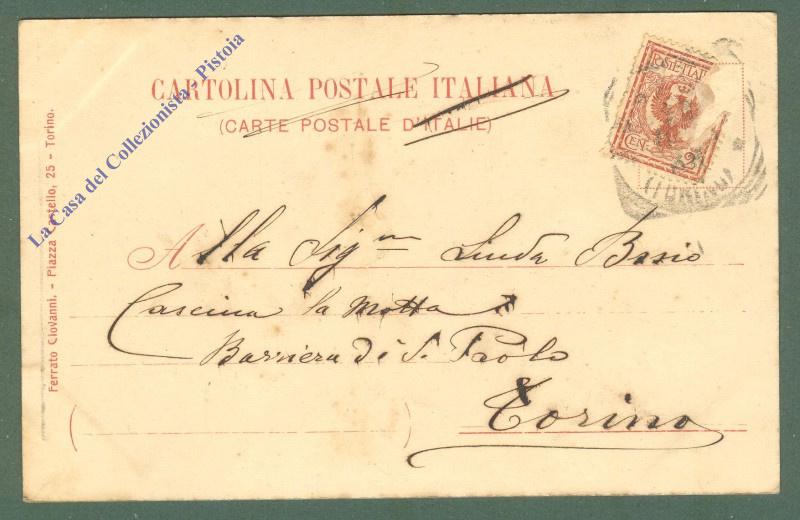 CARTOLINA POSTALE ITALIANA
(CARTE POSTALE D'ITALIE)
POSTE ITAL
CEN. 2
TORINO
Alla Sig.na Linda Bosio
Cascina la Motta
Barriera di S. Paolo
Torino
Ferrato Giovanni. - Piazza Castello, 25 - Torino.
La Casa del Collezionista - Pistoia